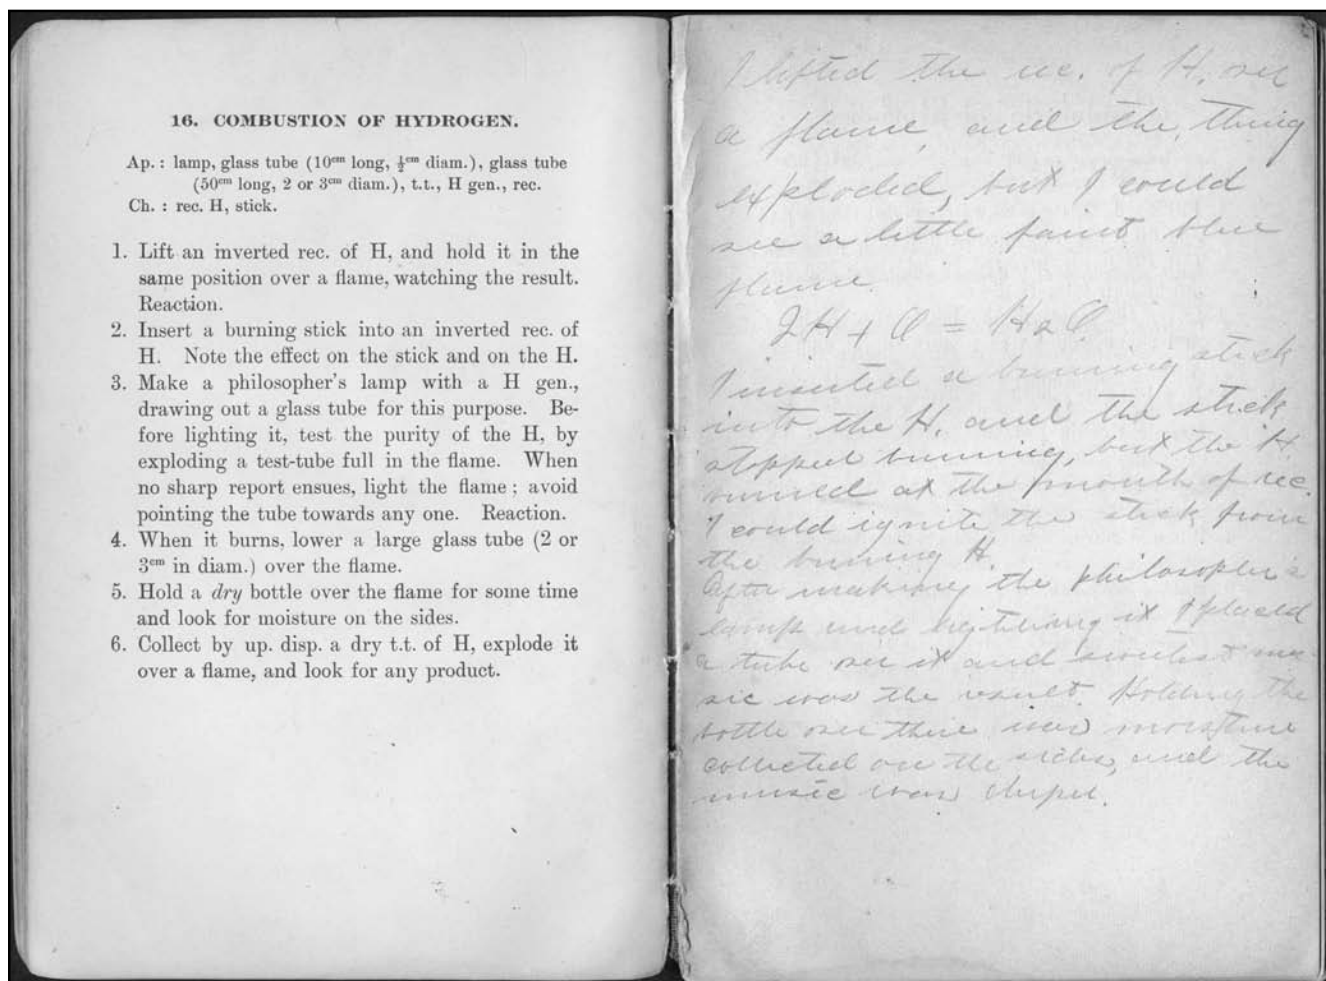 16. COMBUSTION OF HYDROGEN.
Ap. : lamp, glass tube (10cm long, ½cm diam.), glass tube
(50cm long, 2 or 3cm diam.), t.t., H gen., rec.
Ch. : rec. H, stick.
1. Lift an inverted rec. of H, and hold it in the
same position over a flame, watching the result.
Reaction.
2. Insert a burning stick into an inverted rec. of
H. Note the effect on the stick and on the H.
3. Make a philosopher's lamp with a H gen.,
drawing out a glass tube for this purpose. Be-
fore lighting it, test the purity of the H, by
exploding a test-tube full in the flame. When
no sharp report ensues, light the flame ; avoid
pointing the tube towards any one. Reaction.
4. When it burns, lower a large glass tube (2 or
3cm in diam.) over the flame.
5. Hold a dry bottle over the flame for some time
and look for moisture on the sides.
6. Collect by up. disp. a dry t.t. of H, explode it
over a flame, and look for any product.
I lifted the rec. of H. over
a flame, and the thing
exploded, but I could
see a little faint blue
flame.
2H + O = H2O
I inserted a burning stick
into the H. and the stick
stopped burning, but the H.
burned at the mouth of rec.
I could ignite the stick from
the burning H.
After making the philosopher's
lamp and lighting it I placed
a tube over it and sweetest mu-
sic was the result. Holding the
bottle over there was moisture
collected on the sides, and the
music was